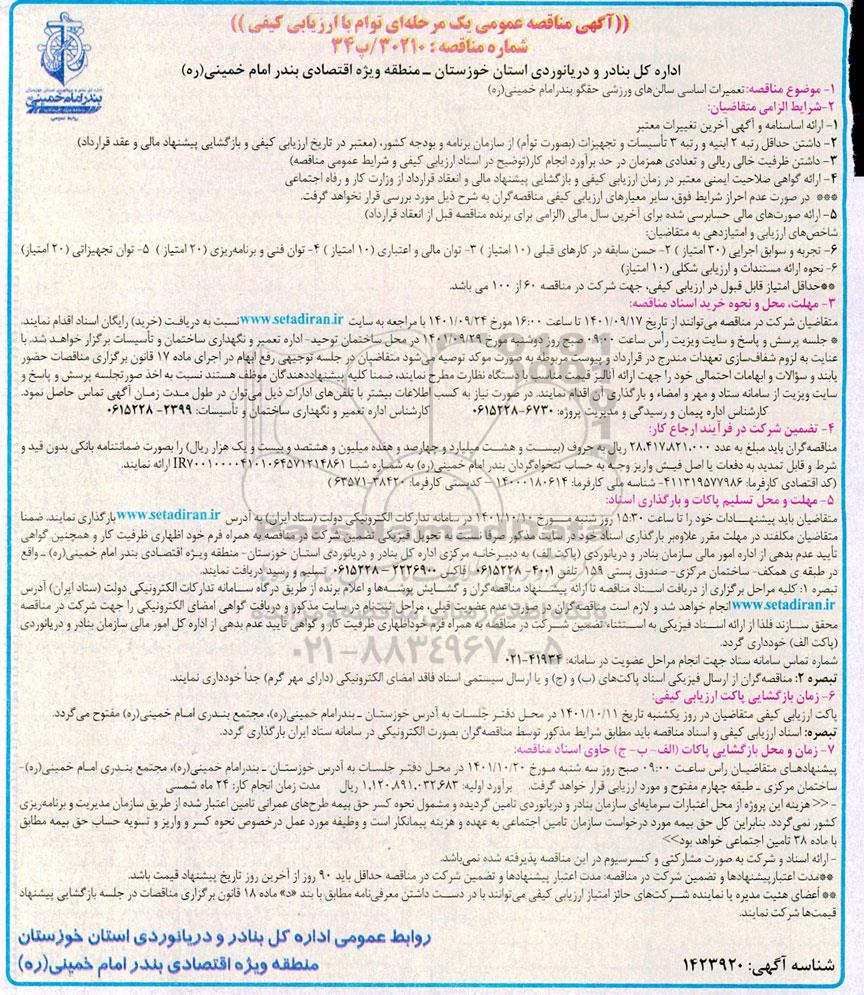 ((آگهی مناقصه عمومی یک مرحله‌ای توام با ارزیابی کیفی))
شماره مناقصه: ۳۰۲۱۰/پ۳۴
اداره کل بنادر و دریانوردی استان خوزستان ـ منطقه ویژه اقتصادی بندر امام خمینی(ره)
بندرامام خمینی(ره)
روابط عمومی
۱- موضوع مناقصه: تعمیرات اساسی سالن‌های ورزشی حقگو بندرامام خمینی(ره)
۲-شرایط الزامی متقاضیان:
۱- ارائه اساسنامه و آگهی آخرین تغییرات معتبر
۲- داشتن حداقل رتبه ۲ ابنیه و رتبه ۳ تأسیسات و تجهیزات (بصورت توأم) از سازمان برنامه و بودجه کشور، (معتبر در تاریخ ارزیابی کیفی و بازگشایی پیشنهاد مالی و عقد قرارداد)
۳- داشتن ظرفیت خالی ریالی و تعدادی همزمان در حد برآورد انجام کار(توضیح در اسناد ارزیابی کیفی و شرایط عمومی مناقصه)
۴- ارائه گواهی صلاحیت ایمنی معتبر در زمان ارزیابی کیفی و بازگشایی پیشنهاد مالی و انعقاد قرارداد از وزارت کار و رفاه اجتماعی
*** در صورت عدم احراز شرایط فوق، سایر معیارهای ارزیابی کیفی مناقصه‌گران به شرح ذیل مورد بررسی قرار نخواهد گرفت.
۵- ارائه صورت‌های مالی حسابرسی شده برای آخرین سال مالی (الزامی برای برنده مناقصه قبل از انعقاد قرارداد)
شاخص‌های ارزیابی و امتیازدهی به متقاضیان:
۶- تجربه و سوابق اجرایی (۳۰ امتیاز) ۲- حسن سابقه در کارهای قبلی (۱۰ امتیاز) ۳- توان مالی و اعتباری (۱۰ امتیاز) ۴- توان فنی و برنامه‌ریزی (۲۰ امتیاز) ۵- توان تجهیزاتی (۲۰ امتیاز)
۶- نحوه ارائه مستندات و ارزیابی شکلی (۱۰ امتیاز)
**حداقل امتیاز قابل قبول در ارزیابی کیفی، جهت شرکت در مناقصه ۶۰ از ۱۰۰ می باشد.
۳- مهلت، محل و نحوه خرید اسناد مناقصه:
متقاضیان شرکت در مناقصه می‌توانند از تاریخ ۱۴۰۱/۰۹/۱۷ تا ساعت ۱۶:۰۰ مورخ ۱۴۰۱/۰۹/۲۴ با مراجعه به سایت www.setadiran.ir نسبت به دریافت (خرید) رایگان اسناد اقدام نمایند.
* جلسه پرسش و پاسخ و سایت ویزیت رأس ساعت ۰۹:۰۰ صبح روز دوشنبه مورخ ۱۴۰۱/۰۹/۲۹ در محل ساختمان توحید- اداره تعمیر و نگهداری ساختمان و تأسیسات برگزار خواهد شد. با
عنایت به لزوم شفاف‌سازی تعهدات مندرج در قرارداد و پیوست مربوطه به صورت موکد توصیه می‌شود متقاضیان در جلسه توجیهی رفع ابهام در اجرای ماده ۱۷ قانون برگزاری مناقصات حضور
یابند و سؤالات و ابهامات احتمالی خود را جهت ارائه آنالیز قیمت مناسب با دستگاه نظارت مطرح نمایند، ضمنا کلیه پیشنهاددهندگان موظف هستند نسبت به اخذ صورتجلسه پرسش و پاسخ و
سایت ویزیت از سامانه ستاد و مهر و امضاء و بارگذاری آن اقدام نمایند. در صورت نیاز به کسب اطلاعات بیشتر با تلفن‌های ادارات ذیل می‌توان در طول مدت زمان آگهی تماس حاصل نمود.
کارشناس اداره پیمان و رسیدگی و مدیریت پروژه: ۶۷۳۰-۰۶۱۵۲۲۸ کارشناس اداره تعمیر و نگهداری ساختمان و تأسیسات: ۲۳۹۹-۰۶۱۵۲۲۸
۴- تضمین شرکت در فرآیند ارجاع کار:
مناقصه‌گران باید مبلغ به عدد ۲۸.۴۱۷.۸۲۱.۰۰۰ ریال به حروف (بیست و هشت میلیارد و چهارصد و هفده میلیون و هشتصد و بیست و یک هزار ریال) را بصورت ضمانتنامه بانکی بدون قید و
شرط و قابل تمدید به دفعات یا اصل فیش واریز وجه به حساب تنخواه‌گردان بندر امام خمینی(ره) به شماره شبا IR۷۰۰۱۰۰۰۰۴۱۰۱۰۶۴۵۷۱۲۱۴۸۶۱ ارائه نمایند.
(کد اقتصادی کارفرما: ۴۱۱۳۱۹۵۷۷۹۸۶- شناسه ملی کارفرما: ۱۴۰۰۰۱۸۰۶۱۴ – کدپستی کارفرما: ۳۸۴۲۰-۶۳۵۷۱)
۵- مهلت و محل تسلیم پاکات و بارگذاری اسناد:
متقاضیان باید پیشنهادات خود را تا ساعت ۱۵:۳۰ روز شنبه مورخ ۱۴۰۱/۱۰/۱۰ در سامانه تدارکات الکترونیکی دولت (ستاد ایران) به آدرس www.setadiran.ir بارگذاری نمایند. ضمنا
متقاضیان مکلفند در مهلت مقرر علاوه‌بر بارگذاری اسناد خود در سایت مذکور صرفا نسبت به تحویل فیزیکی تضمین شرکت در مناقصه به همراه فرم خود اظهاری ظرفیت کار و همچنین گواهی
تأیید عدم بدهی از اداره امور مالی سازمان بنادر و دریانوردی (پاکت الف) به دبیرخانه مرکزی اداره کل بنادر و دریانوردی استان خوزستان- منطقه ویژه اقتصادی بندر امام خمینی (ره) ـ واقع
در طبقه ی همکف- ساختمان مرکزی- صندوق پستی ۱۵۹ تلفن ۴۰۰۱-۰۶۱۵۲۲۸ فاکس ۲۲۲۶۹۰۰-۰۶۱۵۲۲۸ تسلیم و رسید دریافت نمایند.
تبصره ۱: کلیه مراحل برگزاری از دریافت اسناد مناقصه تا ارائه پیشنهاد مناقصه‌گران و گشایش پوشه‌ها و اعلام برنده از طریق درگاه سامانه تدارکات الکترونیکی دولت (ستاد ایران) آدرس
www.setadiran.ir انجام خواهد شد و لازم است مناقصه‌گران در صورت عدم عضویت قبلی، مراحل ثبت‌نام در سایت مذکور و دریافت گواهی امضای الکترونیکی را جهت شرکت در مناقصه
محقق سازند فلذا از ارائه اسناد فیزیکی به استثناء تضمین شرکت در مناقصه به همراه فرم خوداظهاری ظرفیت کار و گواهی تأیید عدم بدهی از اداره کل امور مالی سازمان بنادر و دریانوردی
(پاکت الف) خودداری گردد.
شماره تماس سامانه ستاد جهت انجام مراحل عضویت در سامانه: ۴۱۹۳۴-۰۲۱
تبصره ۲: مناقصه‌گران از ارسال فیزیکی اسناد پاکت‌های (ب) و (ج) و یا ارسال سیستمی اسناد فاقد امضای الکترونیکی (دارای مهر گرم) جداً خودداری نمایند.
۶- زمان بازگشایی پاکت ارزیابی کیفی:
پاکت ارزیابی کیفی متقاضیان در روز یکشنبه تاریخ ۱۴۰۱/۱۰/۱۱ در محل دفتر جلسات به آدرس خوزستان ـ بندرامام خمینی(ره)، مجتمع بندری امام خمینی(ره) مفتوح می‌گردد.
تبصره: اسناد ارزیابی کیفی و اسناد مناقصه باید مطابق شرایط مذکور توسط مناقصه‌گران بصورت الکترونیکی در سامانه ستاد ایران بارگذاری گردد.
۷- زمان و محل بازگشایی پاکات (الف- ب- ج) حاوی اسناد مناقصه:
پیشنهادهای متقاضیان راس ساعت ۰۹:۰۰ صبح روز سه شنبه مورخ ۱۴۰۱/۱۰/۲۰ در محل دفتر جلسات به آدرس خوزستان ـ بندرامام خمینی(ره)، مجتمع بندری امام خمینی(ره)-
ساختمان مرکزی ـ طبقه چهارم مفتوح و مورد ارزیابی قرار خواهد گرفت. برآورد اولیه: ۱.۱۲۰.۸۹۱.۰۳۲.۶۸۳ ریال مدت زمان انجام کار: ۲۴ ماه شمسی
- << هزینه این پروژه از محل اعتبارات سرمایه‌ای سازمان بنادر و دریانوردی تامین گردیده و مشمول نحوه کسر حق بیمه طرح‌های عمرانی تامین اعتبار شده از طریق سازمان مدیریت و برنامه‌ریزی
کشور نمی‌گردد. بنابراین کل حق بیمه مورد درخواست سازمان تامین اجتماعی به عهده و هزینه پیمانکار است و وظیفه مورد عمل درخصوص نحوه کسر و واریز و تسویه حساب حق بیمه مطابق
با ماده ۳۸ تامین اجتماعی خواهد بود>>
- ارائه اسناد و شرکت به صورت مشارکتی و کنسرسیوم در این مناقصه پذیرفته شده نمی‌باشد.
**مدت اعتبارپیشنهادها و تضمین شرکت در مناقصه: مدت اعتبار پیشنهادها و تضمین شرکت در مناقصه حداقل باید ۹۰ روز از آخرین روز تاریخ پیشنهاد قیمت باشد.
** أعضای هیئت مدیره یا نماینده شرکت‌های حائز امتیاز ارزیابی کیفی می‌توانند با در دست داشتن معرفی‌نامه مطابق با بند «د» ماده ۱۸ قانون برگزاری مناقصات در جلسه بازگشایی پیشنهاد
قیمت‌ها شرکت نمایند.
روابط عمومی اداره کل بنادر و دریانوردی استان خوزستان
منطقه ویژه اقتصادی بندر امام خمینی(ره)
شناسه آگهی: ۱۴۲۳۹۲۰
۰۲۱-۸۸۳۴۹۶۷۰-۵